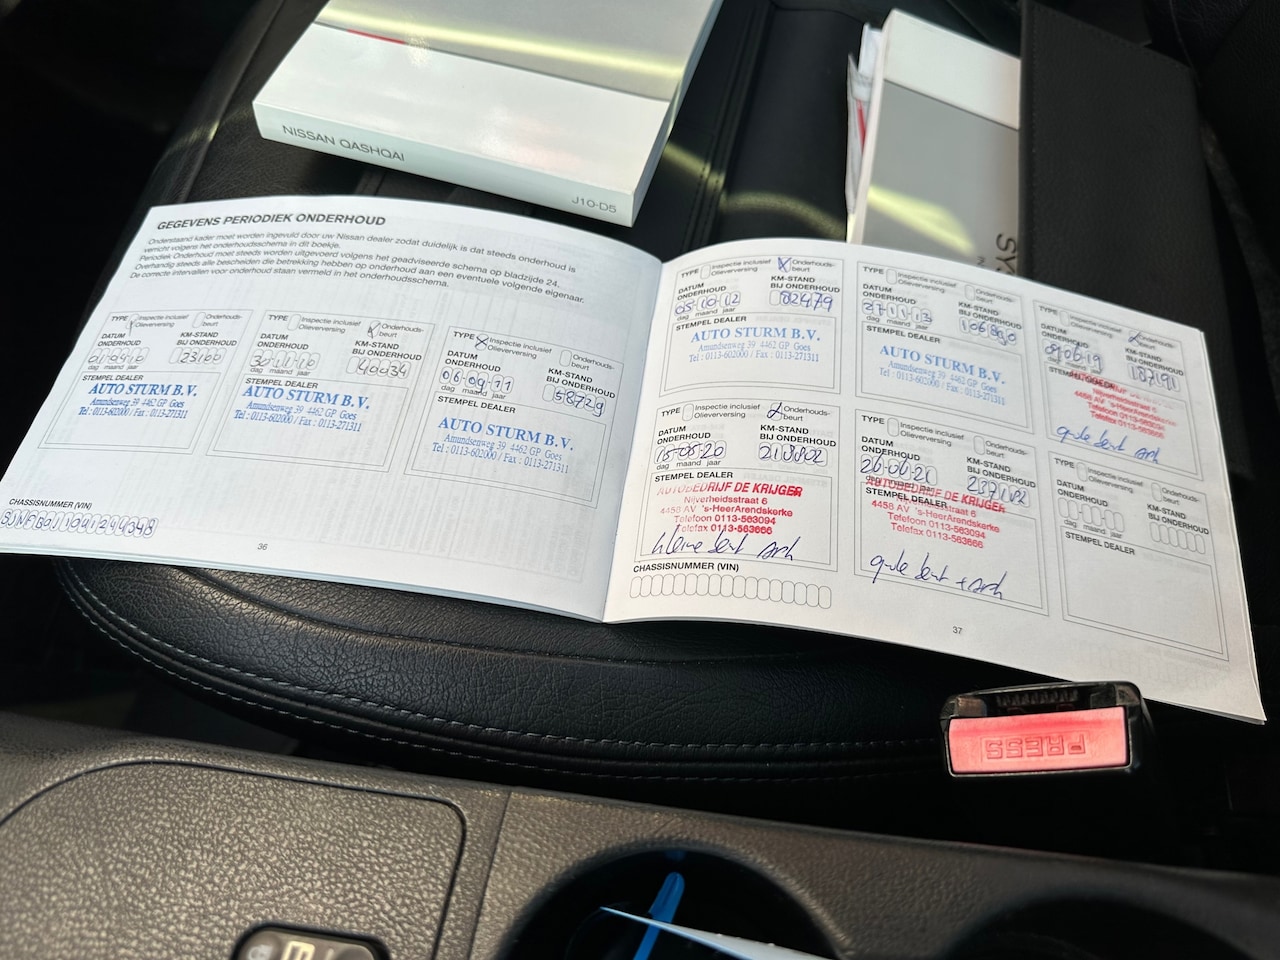 NISSAN QASHQAI
J10-D5
SY
GEGEVENS PERIODIEK ONDERHOUD
Onderstaand kader moet worden ingevuld door uw Nissan dealer zodat duidelijk is dat steeds onderhoud is
verricht volgens het onderhoudsschema in dit boekje.
Periodiek Onderhoud moet steeds worden uitgevoerd volgens het geadviseerde schema op bladzijde 24.
Overhandig steeds alle bescheiden die betrekking hebben op onderhoud aan een eventuele volgende eigenaar.
De correcte intervallen voor onderhoud staan vermeld in het onderhoudsschema.
TYPE Inspectie inclusief Olieverversing Onderhouds-beurt
DATUM ONDERHOUD
KM-STAND BIJ ONDERHOUD
23100
dag maand jaar
STEMPEL DEALER
AUTO STURM B.V.
Amundsenweg 39 4462 GP Goes
Tel : 0113-602000 / Fax : 0113-271311
TYPE Inspectie inclusief Olieverversing Onderhouds-beurt
DATUM ONDERHOUD
KM-STAND BIJ ONDERHOUD
30-11-10
40034
dag maand jaar
STEMPEL DEALER
AUTO STURM B.V.
Amundsenweg 39 4462 GP Goes
Tel : 0113-602000 / Fax : 0113-271311
TYPE Inspectie inclusief Olieverversing Onderhouds-beurt
DATUM ONDERHOUD
KM-STAND BIJ ONDERHOUD
06-09-11
58729
dag maand jaar
STEMPEL DEALER
AUTO STURM B.V.
Amundsenweg 39 4462 GP Goes
Tel : 0113-602000 / Fax : 0113-271311
CHASSISNUMMER (VIN)
36
TYPE Inspectie inclusief Olieverversing Onderhouds-beurt
DATUM ONDERHOUD
KM-STAND BIJ ONDERHOUD
05-10-12
82479
dag maand jaar
STEMPEL DEALER
AUTO STURM B.V.
Amundsenweg 39 4462 GP Goes
Tel : 0113-602000 / Fax : 0113-271311
TYPE Inspectie inclusief Olieverversing Onderhouds-beurt
DATUM ONDERHOUD
KM-STAND BIJ ONDERHOUD
27-11-13
dag maand jaar
STEMPEL DEALER
AUTO STURM B.V.
Amundsenweg 39 4462 GP Goes
Tel : 0113-602000 / Fax : 0113-271311
TYPE Inspectie inclusief Olieverversing Onderhouds-beurt
DATUM ONDERHOUD
KM-STAND BIJ ONDERHOUD
187191
dag maand jaar
Nijverheidsstraat 6
4458 AV 's-HeerArendskerke
Telefoon 0113-563094
Telefax 0113-563666
TYPE Inspectie inclusief Olieverversing Onderhouds-beurt
DATUM ONDERHOUD
KM-STAND BIJ ONDERHOUD
15-05-20
dag maand jaar
STEMPEL DEALER
AUTOBEDRIJF DE KRIJGER
Nijverheidsstraat 6
4458 AV 's-HeerArendskerke
Telefoon 0113-563094
Telefax 0113-563666
kleine beurt
TYPE Inspectie inclusief Olieverversing Onderhouds-beurt
DATUM ONDERHOUD
KM-STAND BIJ ONDERHOUD
dag maand jaar
AUTOBEDRIJF DE KRIJGER
STEMPEL DEALER
Nijverheidsstraat 6
4458 AV 's-HeerArendskerke
Telefoon 0113-563094
Telefax 0113-563666
TYPE Inspectie inclusief Olieverversing Onderhouds-beurt
DATUM ONDERHOUD
KM-STAND BIJ ONDERHOUD
dag maand jaar
STEMPEL DEALER
CHASSISNUMMER (VIN)
37
PRESS